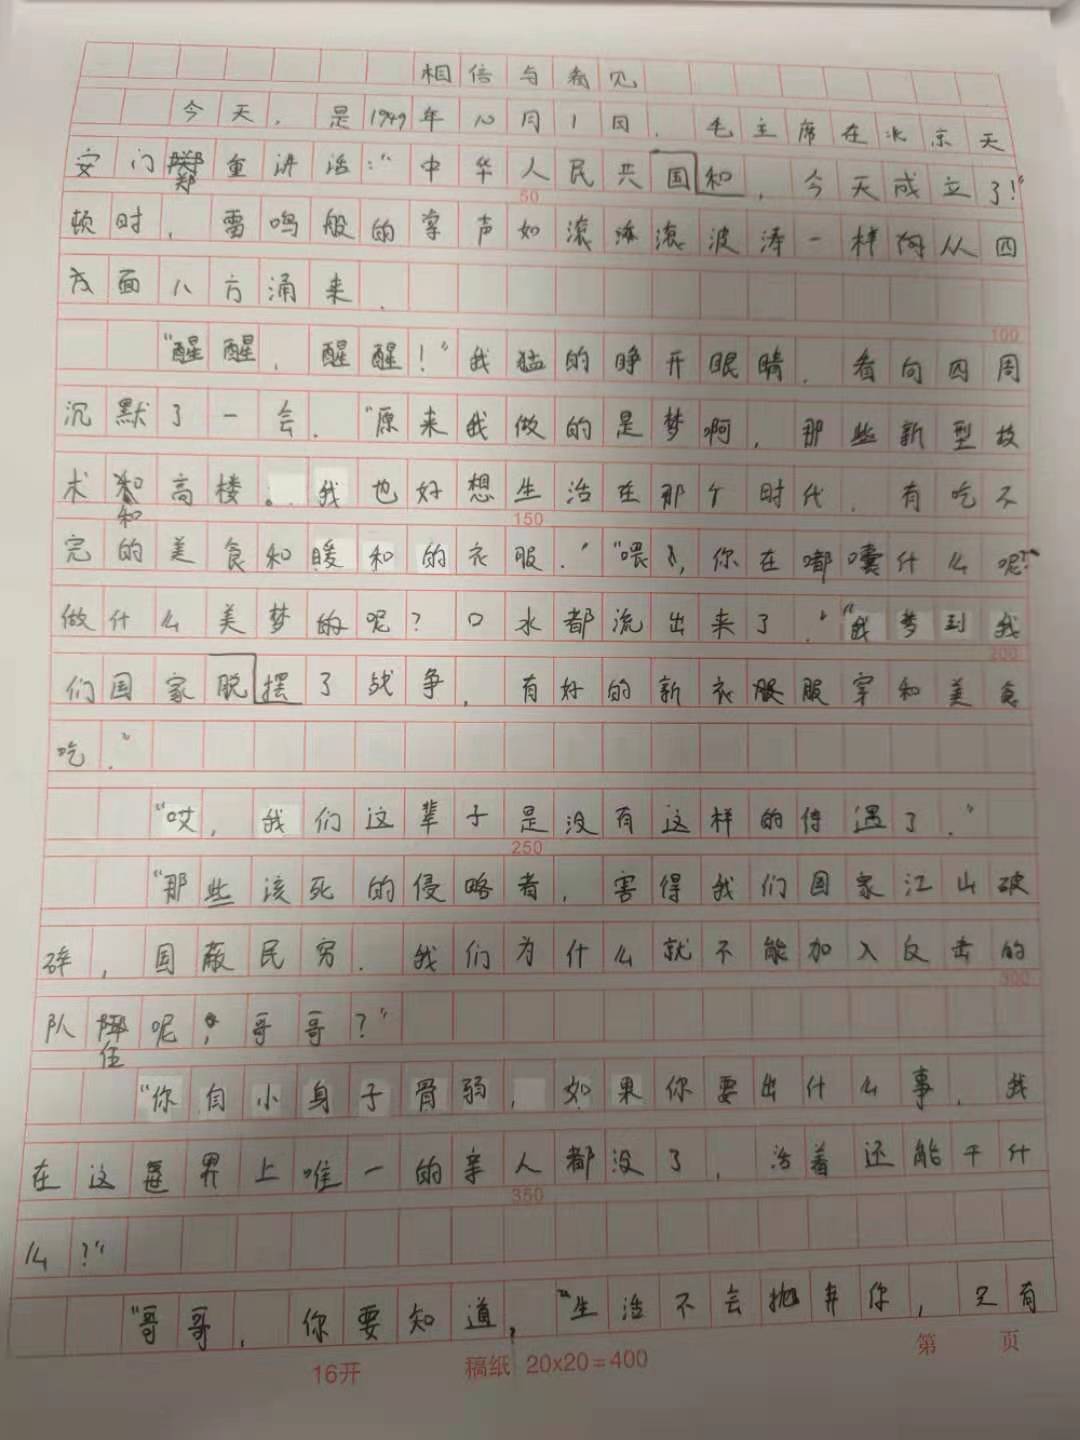 相信与看见
今天，是1949年10月1日，毛主席在北京天
安门郑重讲话：“中华人民共国和，今天成立了！”
顿时，雷鸣般的掌声如滚滚波涛一样从四
面八方涌来.
“醒醒，醒醒！”我猛的睁开眼睛，看向四周
沉默了一会.“原来我做的是梦啊，那些新型技
术和高楼。我也好想生活在那个时代，有吃不
完的美食和暖和的衣服.”“喂，你在嘟囔什么呢？
做什么美梦的呢？口水都流出来了.”“我梦到我
们国家脱摆了战争，有好的新衣服服穿和美食
吃.”
“哎，我们这辈子是没有这样的待遇了.”
“那些该死的侵略者，害得我们国家江山破
碎，国蔽民穷.我们为什么就不能加入反击的
队伍呢，哥哥？”
“你自小身子骨弱，如果你要出什么事，我
在这世界上唯一的亲人都没了，活着还能干什
么？”
“哥哥，你要知道，“生活不会抛弃你，只有
16开 稿纸 20x20=400 第 页
50
100
150
200
250
300
350